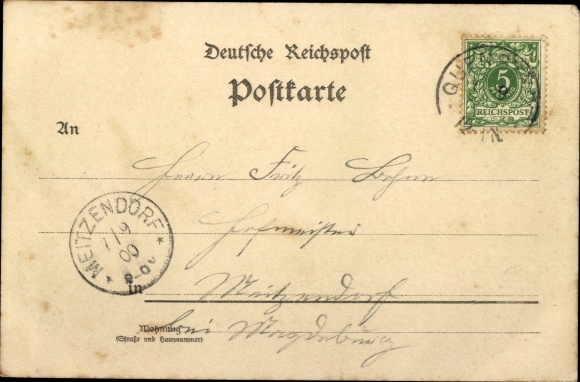 Deutsche Reichspost
Postkarte
5
REICHSPOST
An
Herrn Fritz Behm
Hofmeister
MEITZENDORF
1 9
00
8-9V
in Meitzendorf
bei Magdeburg
Wohnung
(Straße und Hausnummer)